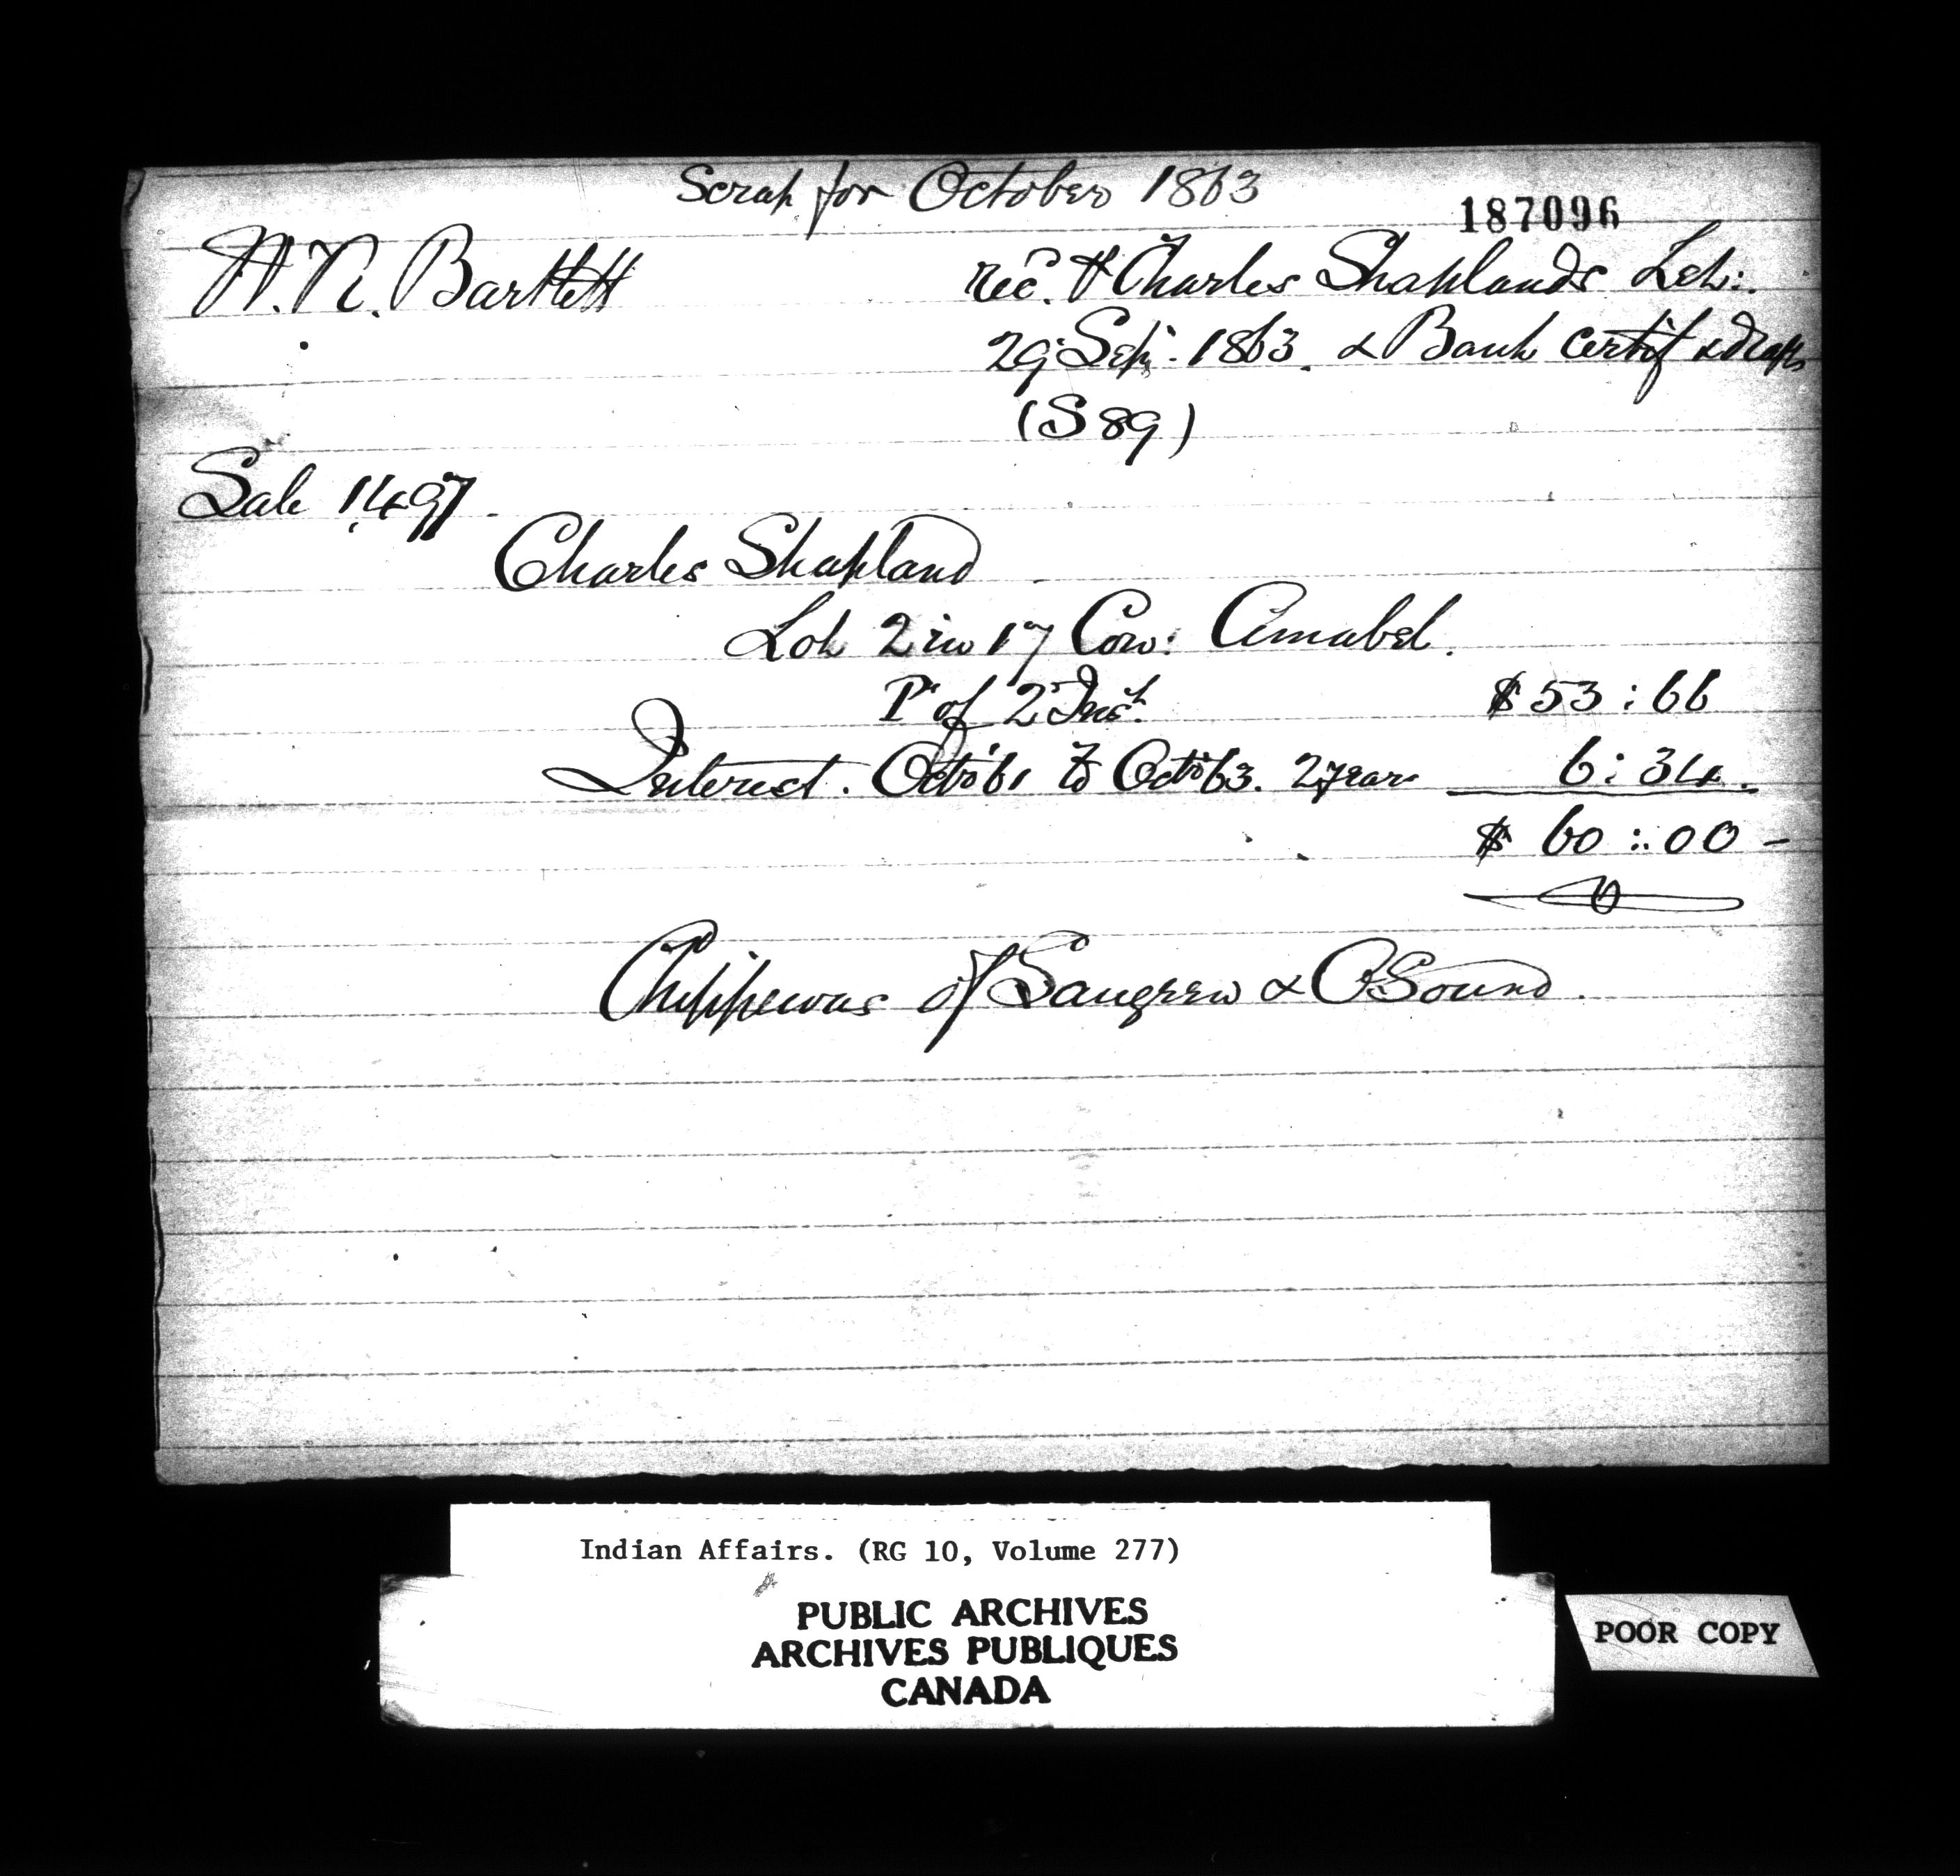 Scrap for October 1863
187096
W. R. Bartlett
rec'd Charles Shaplands Let:
29 Sep: 1863. & Bank Certif & Draft
(S 89)
Sale 1497.
Charles Shapland
Lot 2 in 17 Con: Amabel.
Pt of 2 Inst. $53:66
Interest. Octo 61 to Octo 63. 2 years 6:34.
$ 60:00 -
Chippewas of Saugeen & O. Sound.
Indian Affairs. (RG 10, Volume 277)
PUBLIC ARCHIVES
ARCHIVES PUBLIQUES
CANADA
POOR COPY